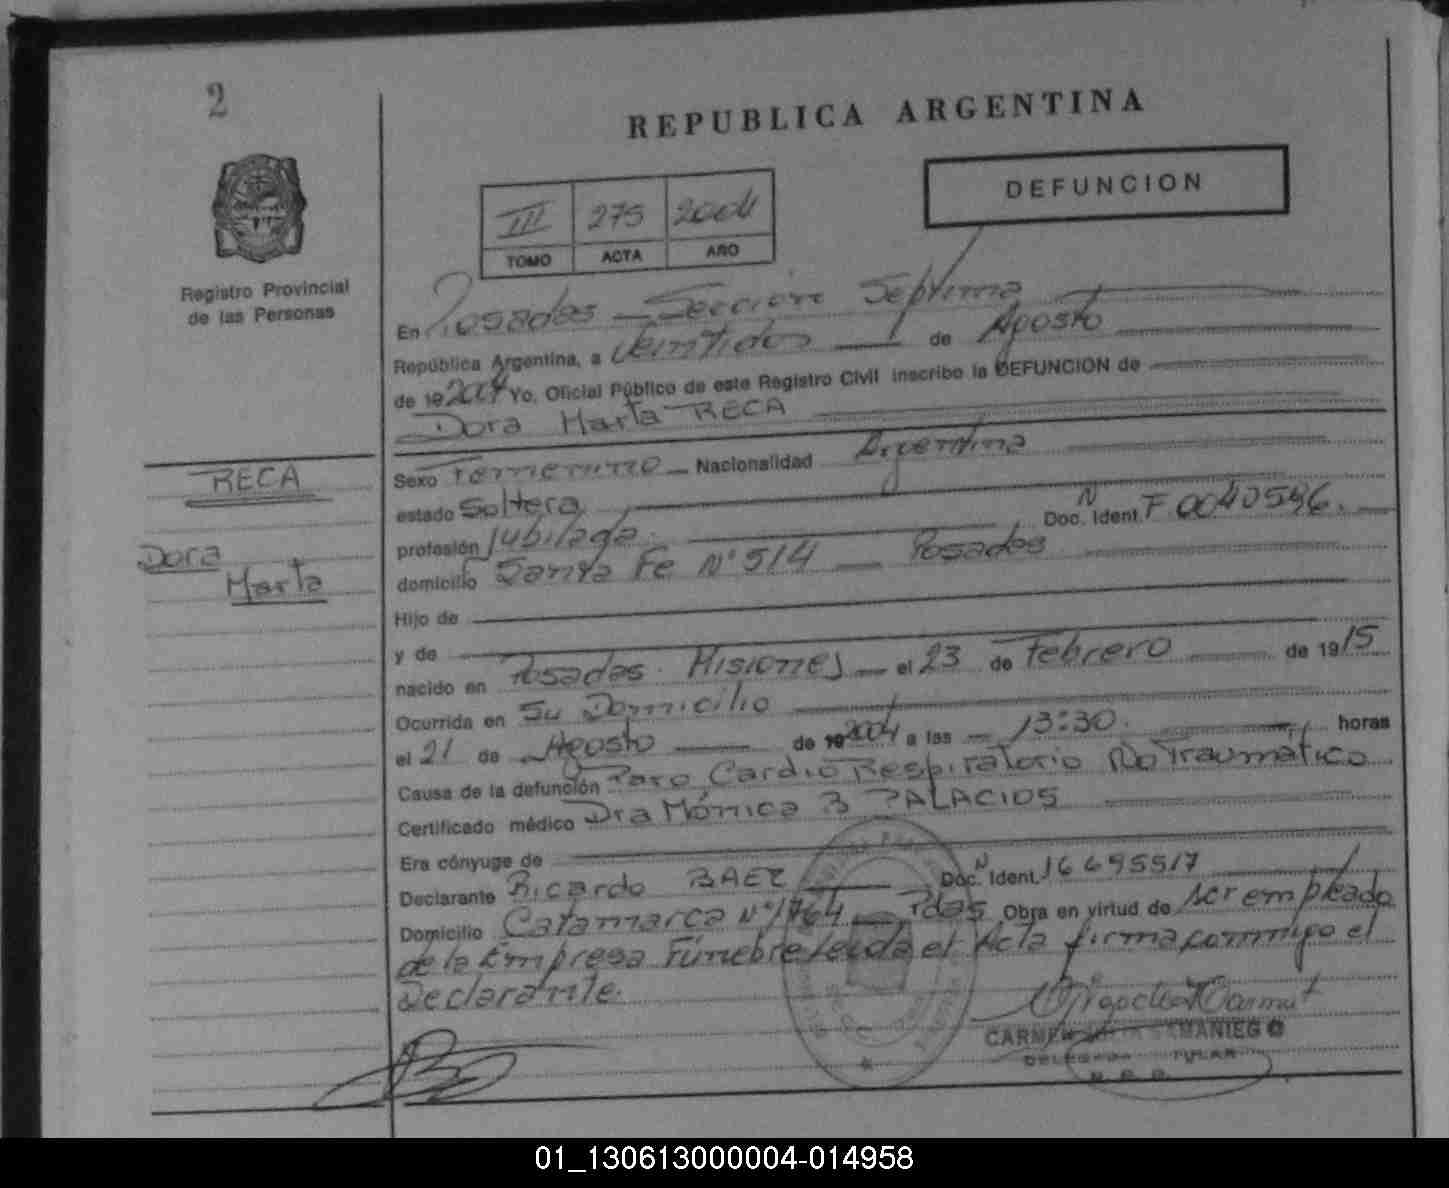 2
REPUBLICA ARGENTINA
DEFUNCION
III 275 2004
TOMO ACTA AÑO
Registro Provincial
de las Personas
En Posadas - Sección Septima
República Argentina, a Veintidos de Agosto
de 19 2004 Yo, Oficial Público de este Registro Civil inscribo la DEFUNCION de
Dora Marta RECA
RECA
Dora
Marta
Sexo Femenino - Nacionalidad Argentina
estado Soltera
profesión Jubilada. Doc. Ident. N F 0040596.
domicilio Santa Fe N° 514 - Posadas
Hijo de
y de
nacido en Posadas Misiones - el 23 de Febrero de 1915
Ocurrida en Su Domicilio
el 21 de Agosto de 19 2004 a las 13:30. horas
Causa de la defunción Paro Cardio Respiratorio No Traumático
Certificado médico Dra Mónica B PALACIOS
Era cónyuge de
Declarante Ricardo BAEZ Doc. Ident. N 16695517
Domicilio Catamarca N° 1764 - Pdas Obra en virtud de ser empleado
de la Empresa Fúnebre leida el Acta firma conmigo el
Declarante.
CARMEN SAMANIEGO
DELEGADA TITULAR
01_130613000004-014958